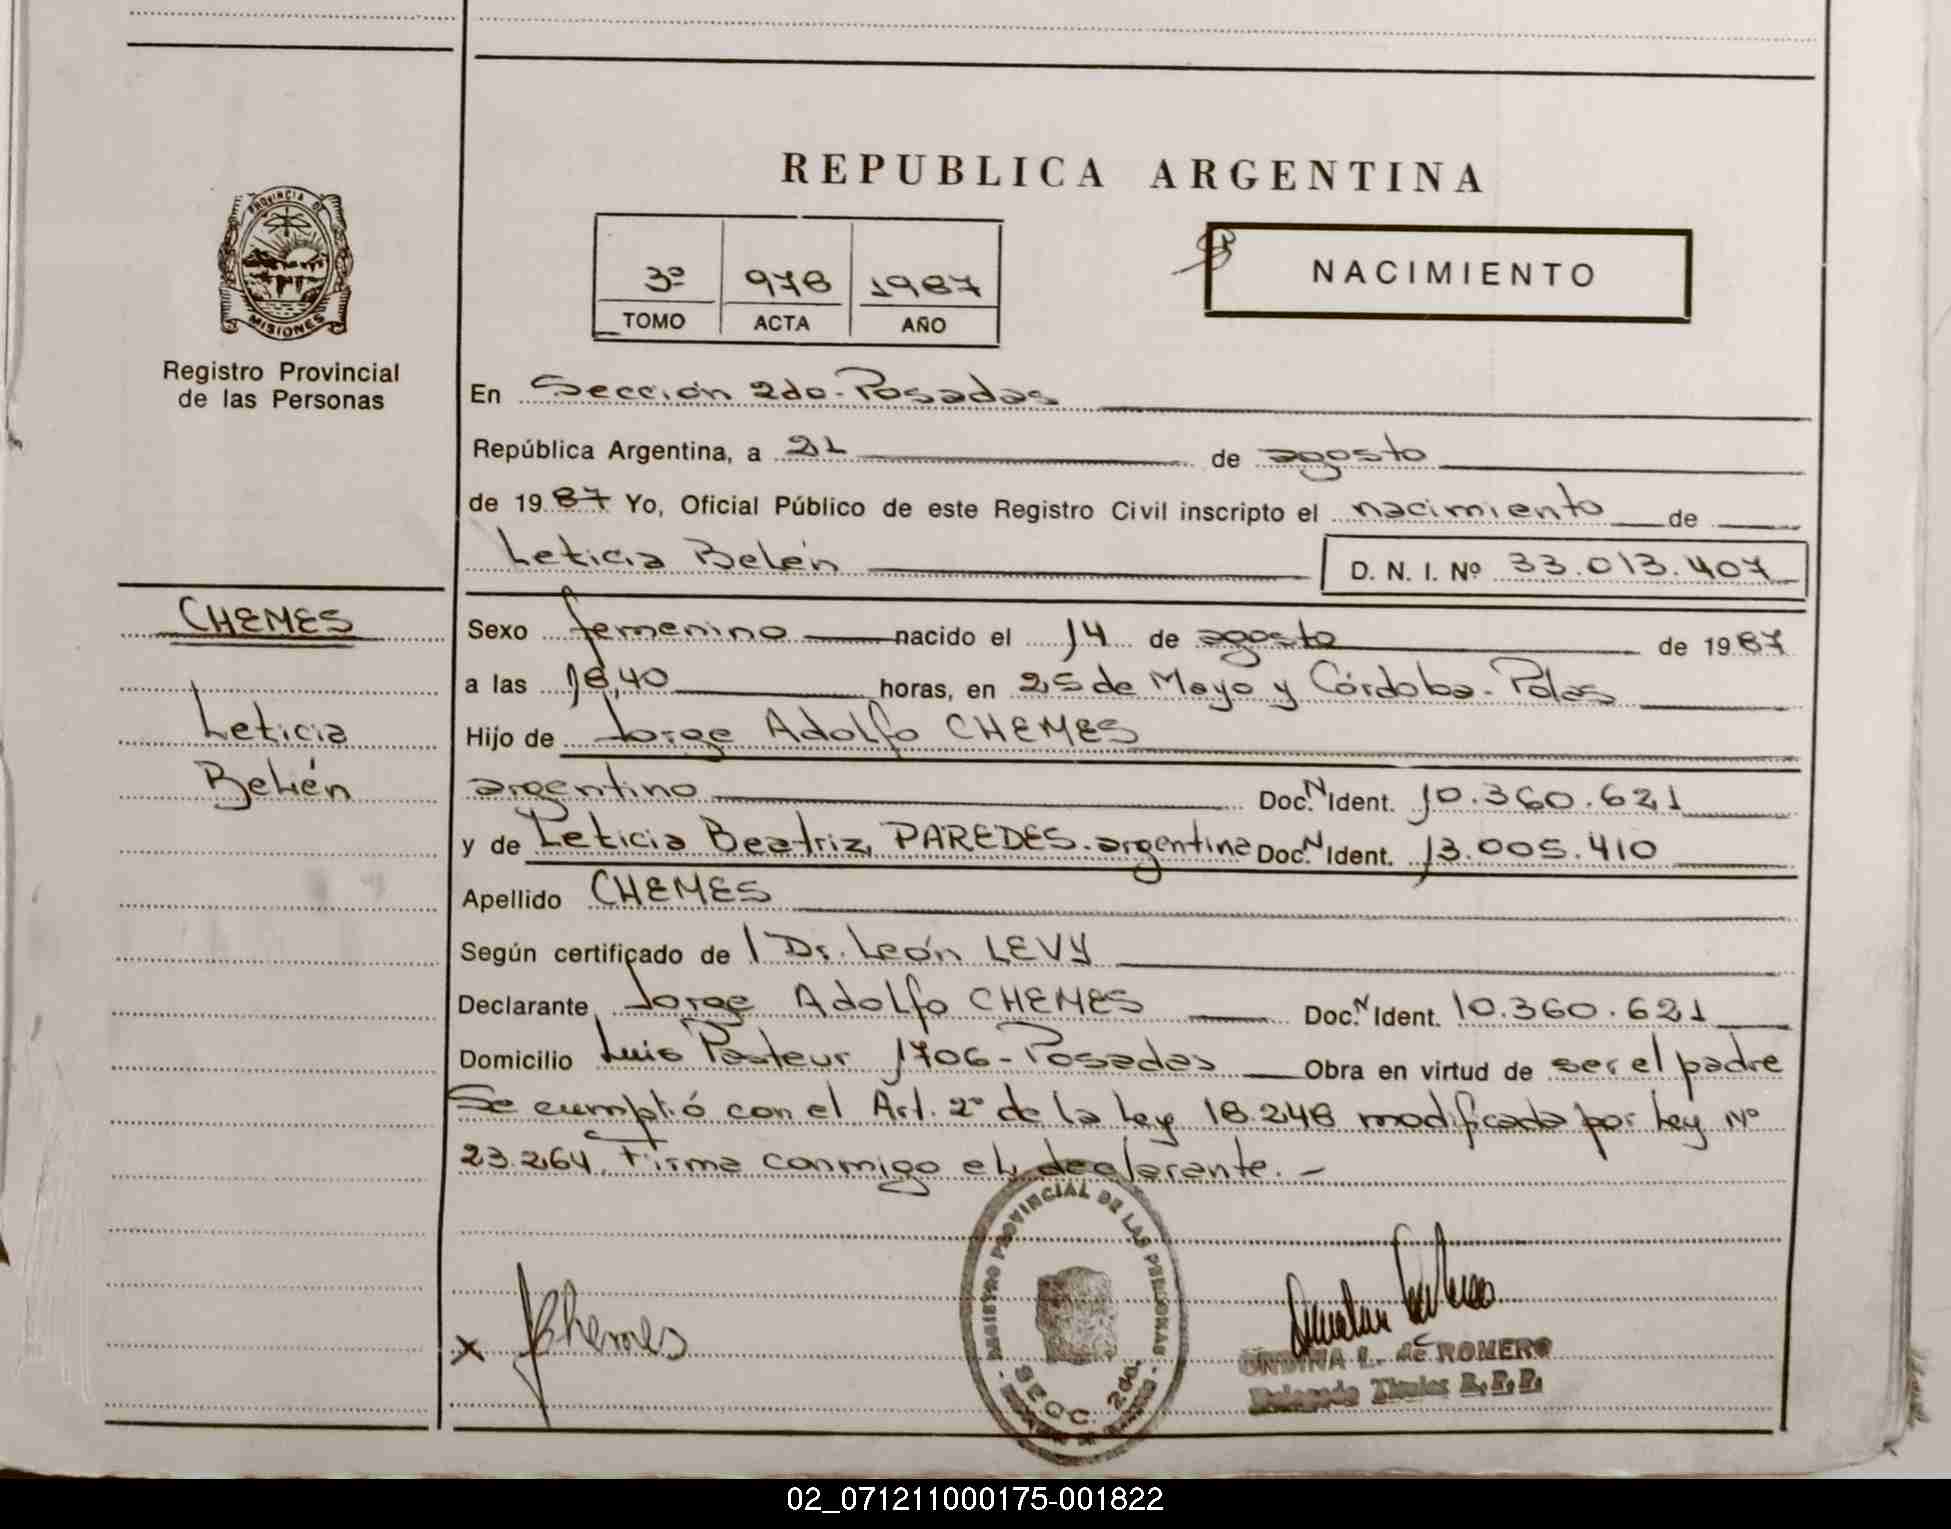 REPUBLICA ARGENTINA
PROVINCIA DE
MISIONES
Registro Provincial
de las Personas
3º 978 1987
TOMO ACTA AÑO
NACIMIENTO
En Sección 2do-Posadas
República Argentina, a 21 de agosto
de 1987 Yo, Oficial Público de este Registro Civil inscripto el nacimiento de
Leticia Belén D. N. I. Nº 33.013.407
CHEMES
Leticia
Belén
Sexo femenino nacido el 14 de agosto de 1987
a las 18,40 horas, en 25 de Mayo y Córdoba-Pdas
Hijo de Jorge Adolfo CHEMES
argentino Doc. N Ident. 10.360.621
y de Leticia Beatriz PAREDES-argentina Doc. N Ident. 13.005.410
Apellido CHEMES
Según certificado de l Dr. León LEVY
Declarante Jorge Adolfo CHEMES Doc. N Ident. 10.360.621
Domicilio Luis Pasteur 1706-Posadas Obra en virtud de ser el padre
Se cumplió con el Art. 2º de la Ley 18.248 modificada por Ley Nº
23.264. Firma conmigo el declarante.-
REGISTRO PROVINCIAL DE LAS PERSONAS
SECC. 2da.
x JChemes
ONDINA L. de ROMERO
Delegada Titular R.P.P.
02_071211000175-001822